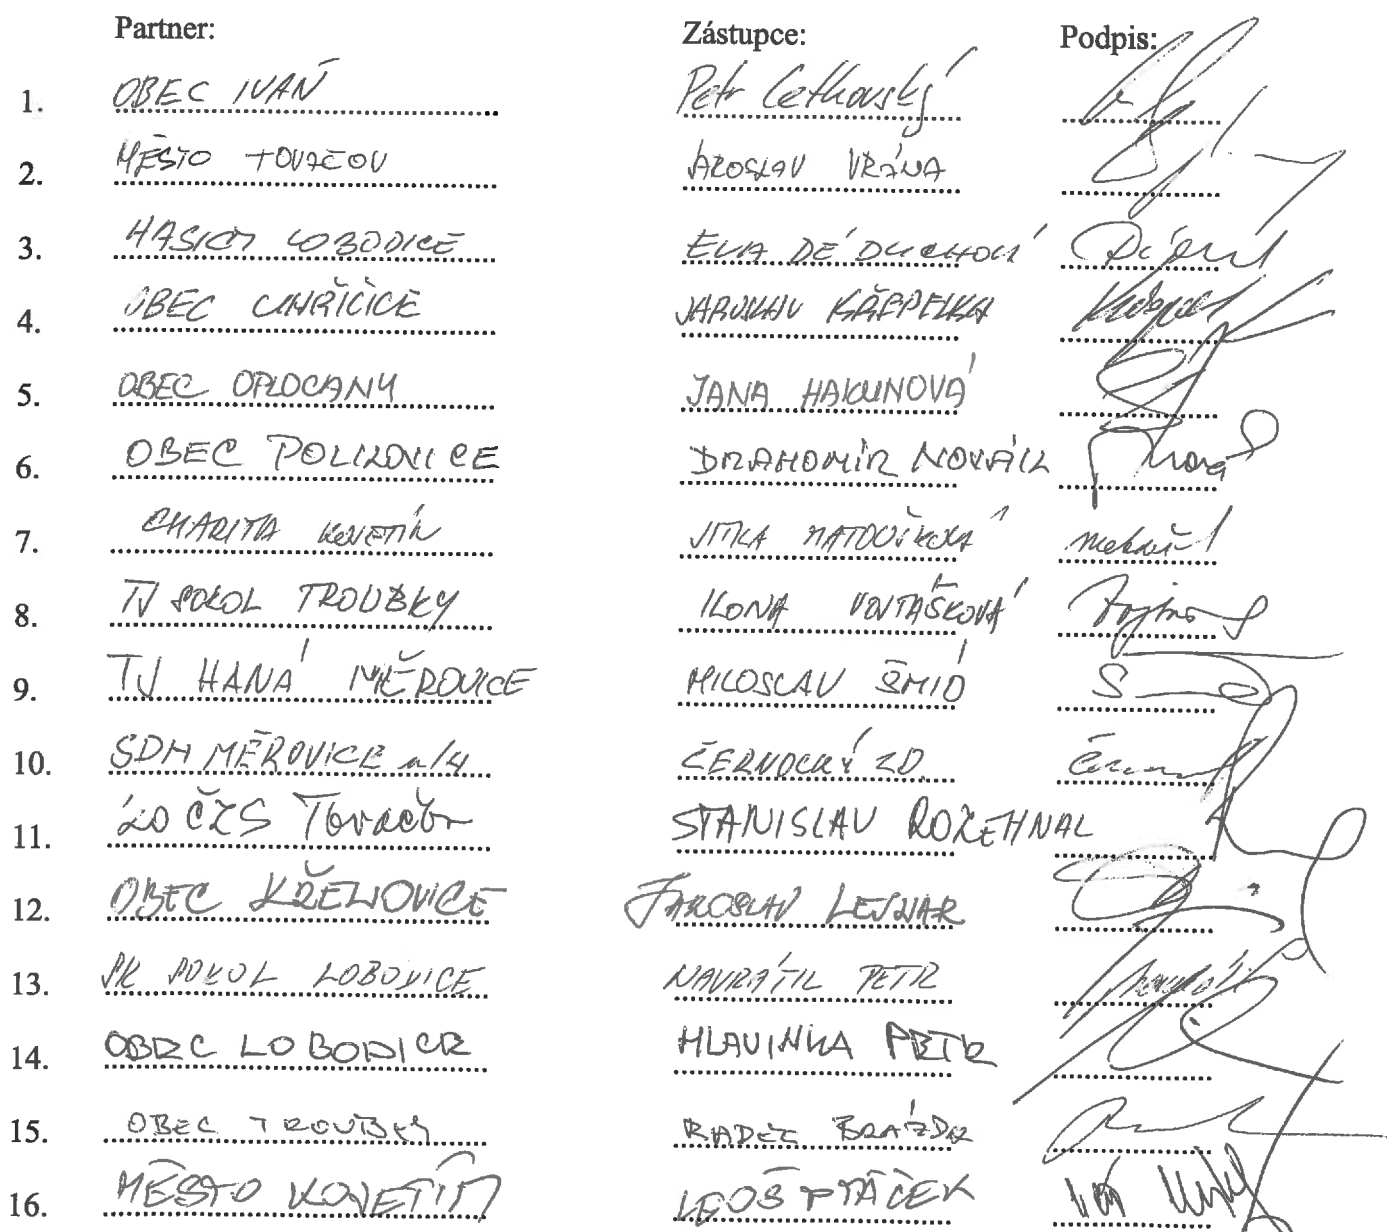 Partner: Zástupce: Podpis:
1. OBEC IVAŇ Petr Cetkovský
2. MĚSTO TOVAČOV JAROSLAV VRÁNA
3. HASIČI LOBODICE EVA DĚDUCHOVÁ
4. OBEC UHŘIČICE JAROSLAV KŘEPELKA
5. OBEC OPLOCANY JANA HAKUNOVÁ
6. OBEC POLKOVICE DRAHOMÍR NOVÁK
7. CHARITA KOJETÍN JITKA MATOUŠKOVÁ
8. TJ SOKOL TROUBKY ILONA VOJTÁŠKOVÁ
9. TJ HANÁ MĚROVICE MILOSLAV ŠMÍD
10. SDH MĚROVICE n/H ČERNOCKÝ ZD.
11. ZO ČZS Tovačov STANISLAV ROŽEHNAL
12. OBEC KŘENOVICE JAROSLAV LESNAR
13. SK SOKOL LOBODICE NAVRÁTIL PETR
14. OBEC LOBODICE HLAVINKA PETR
15. OBEC TROUBKY RADEK BRÁZDA
16. MĚSTO KOJETÍN LEOŠ PTÁČEK